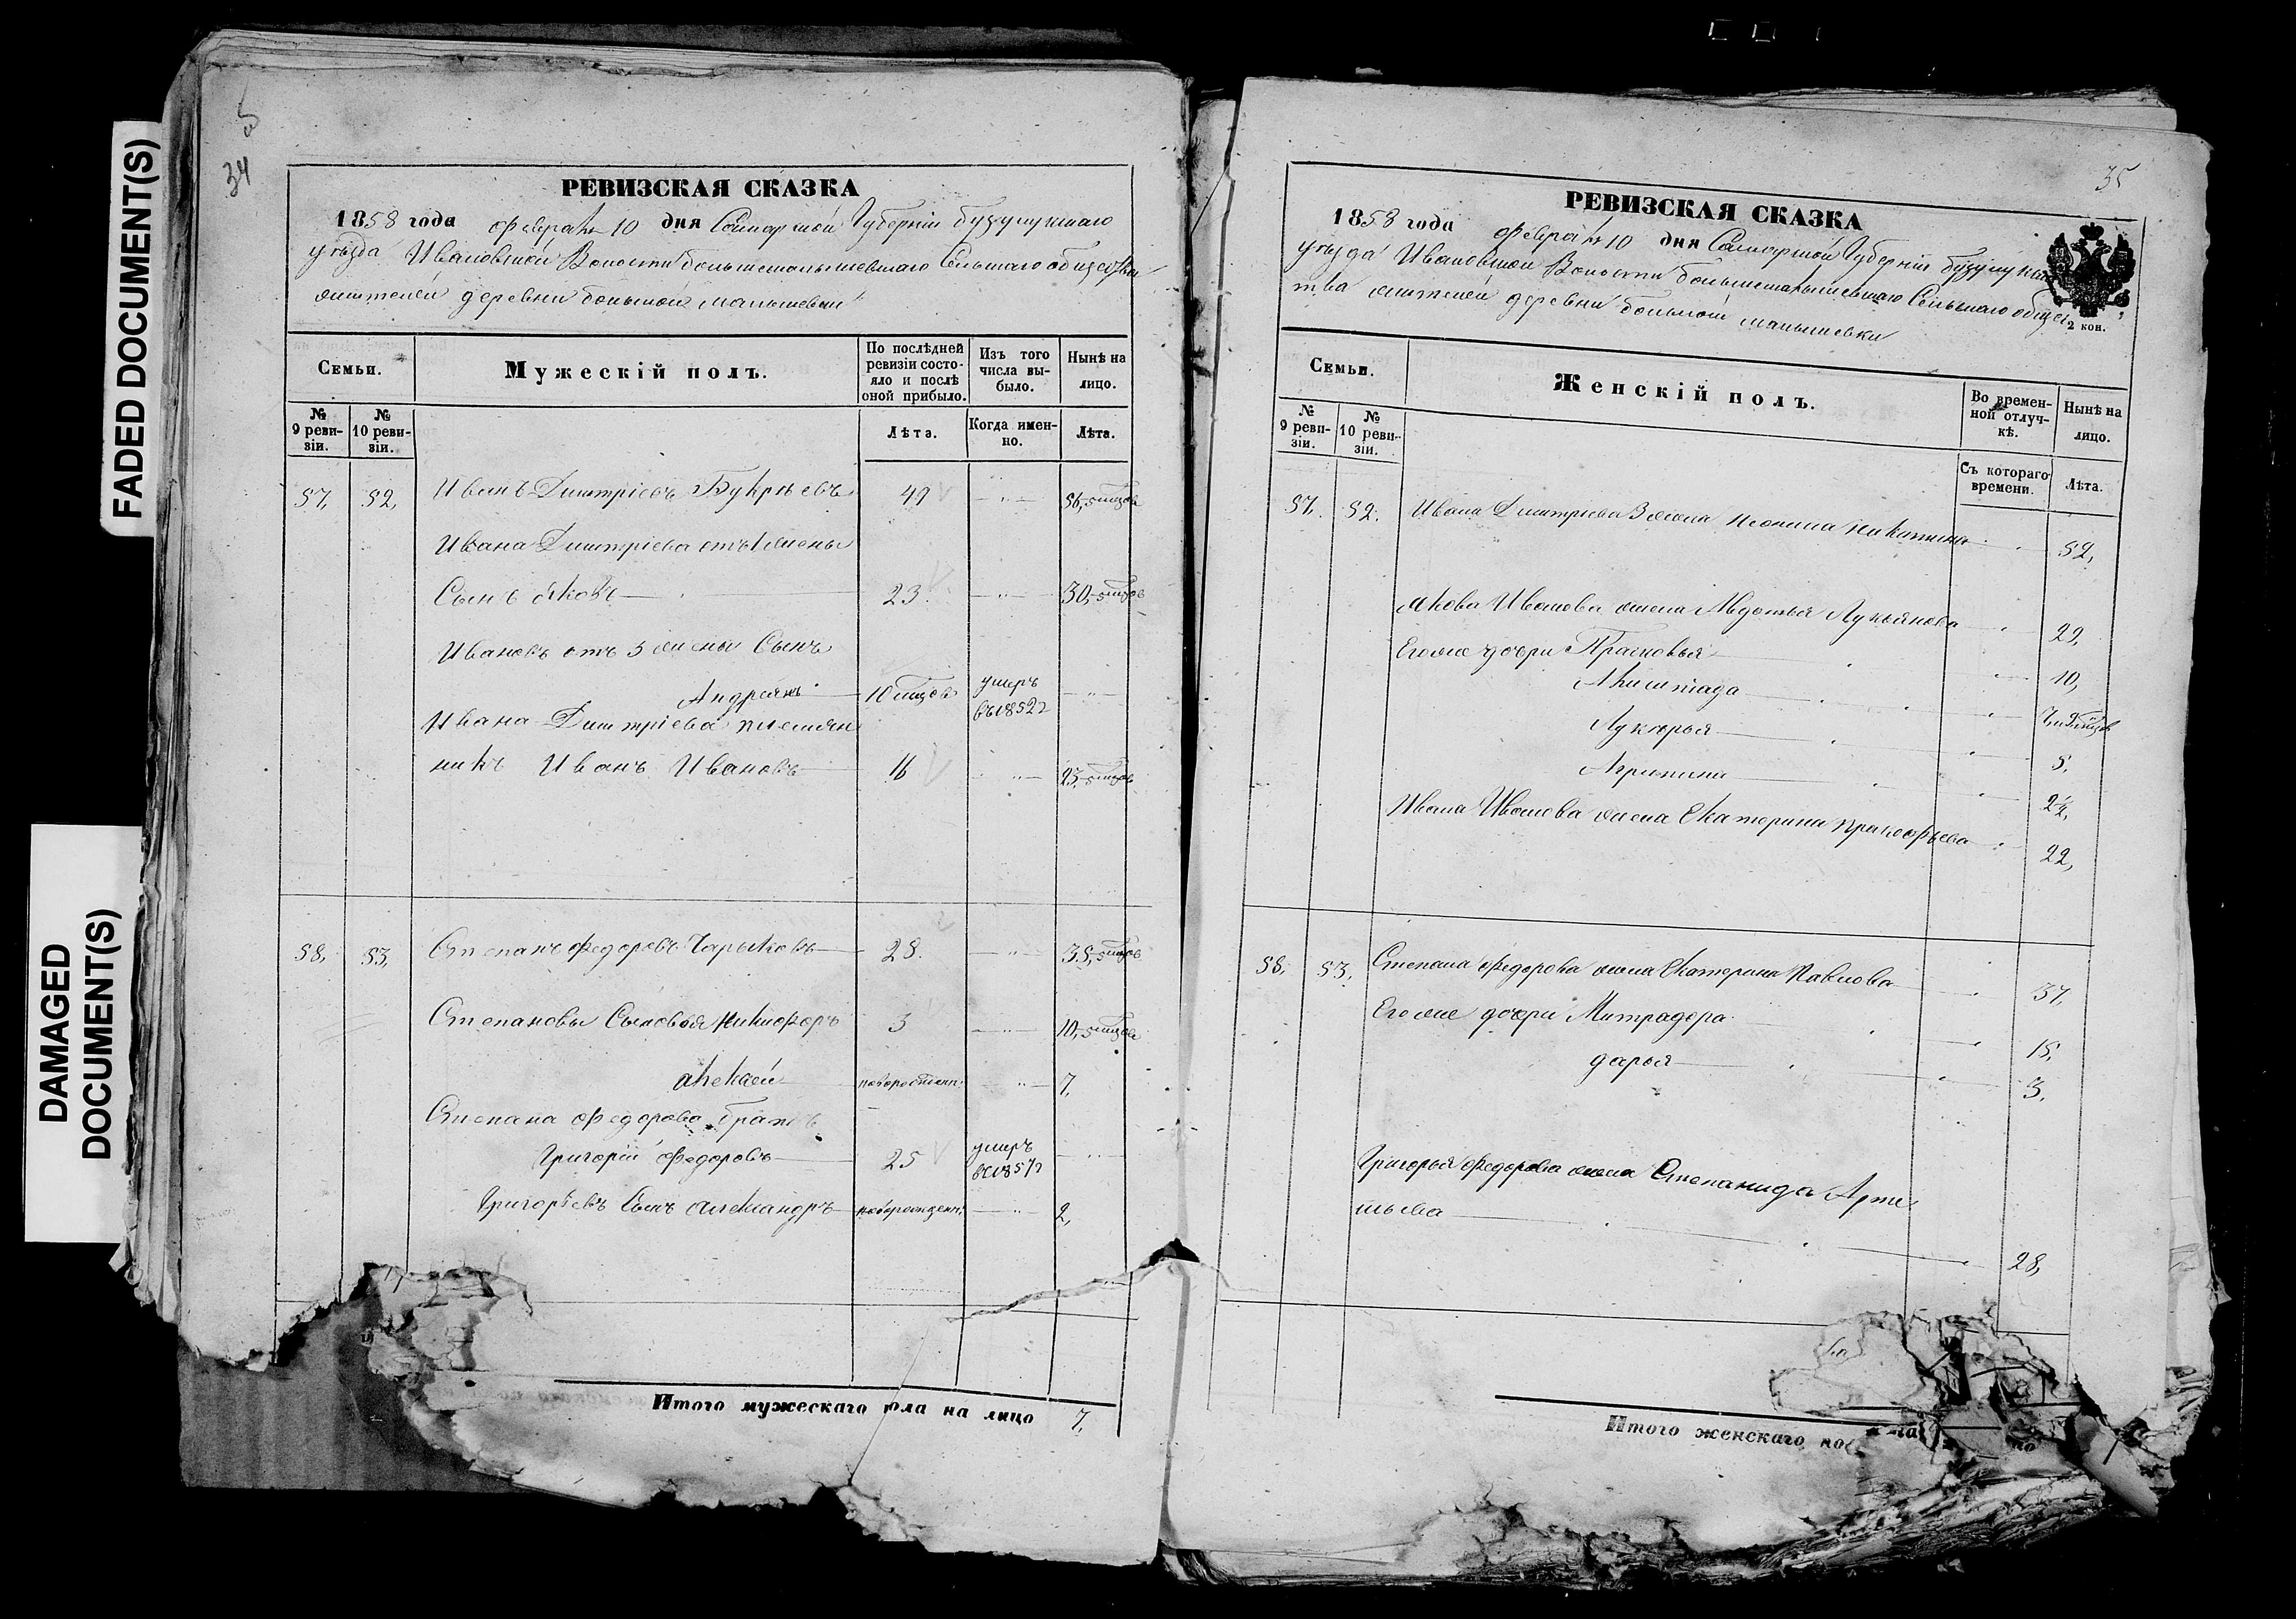 FADED DOCUMENT(S)
DAMAGED
DOCUMENT(S)
34
РЕВИЗСКАЯ СКАЗКА
1858 года февраля 10 дня Самарской Губернiи бузулукскаго
уѣзда Ивановской Волости большемалышевскаго Сельскаго обществ
жителей деревни большой малышевки
Семьи.
Мужескiй полъ.
По послѣдней ревизiи состояло и послѣ оной прибыло.
Изъ того числа выбыло.
Нынѣ на лицо.
№ 9 ревизiи.
№ 10 ревизiи.
Лѣта.
Когда именно.
Лѣта.
57, 52, Иванъ Дмитрiевъ Букрѣевъ 49 56,
Ивана Дмитрiева отъ 1 жены
Сынъ яковъ 23 30,
Ивановъ отъ 3 жены Сынъ
Андреянъ 10 умеръ въ 1852 г
Ивана Дмитрiева племян
никъ Иванъ Ивановъ 16 23
58, 53, Степанъ федоровъ Чарыковъ 28. 35,
Степановы Сыновья никифоръ 3 10,
алексей новорожден: 7,
Степана федорова братъ
Григорiй федоровъ 25 умеръ въ 1857 г
Григорьевъ Сынъ александръ новорожден: 2,
Итого мужескаго пола на лицо 7,
35
РЕВИЗСКАЯ СКАЗКА
1858 года февраля 10 дня Самарской Губернiи бузулукска
уѣзда Ивановской Волости большемалышевскаго Сельскаго общес
тва жителей деревни большой малышевки
2 кон.
Семьи.
Женскiй полъ.
Во временной отлучкѣ.
Нынѣ на лицо.
№ 9 ревизiи.
№ 10 ревизiи.
Съ котораго времени.
Лѣта.
57, 52. Ивана Дмитрiева 3 жена никитина 52,
якова Иванова жена Авдотья Лукьянова 29,
Егоже дочери Прасковья 10,
Акилинада
Лукерья 5,
Агрипина 2½,
Ивана Иванова жена Екатерина 22,
58, 53, Степана федорова жена Екатерина Павлова 37,
Егоже дочери Митрадора 15,
дарья 3,
Григорья федорова жена Степанида Арте
мьева 28,
Итого женскаго по